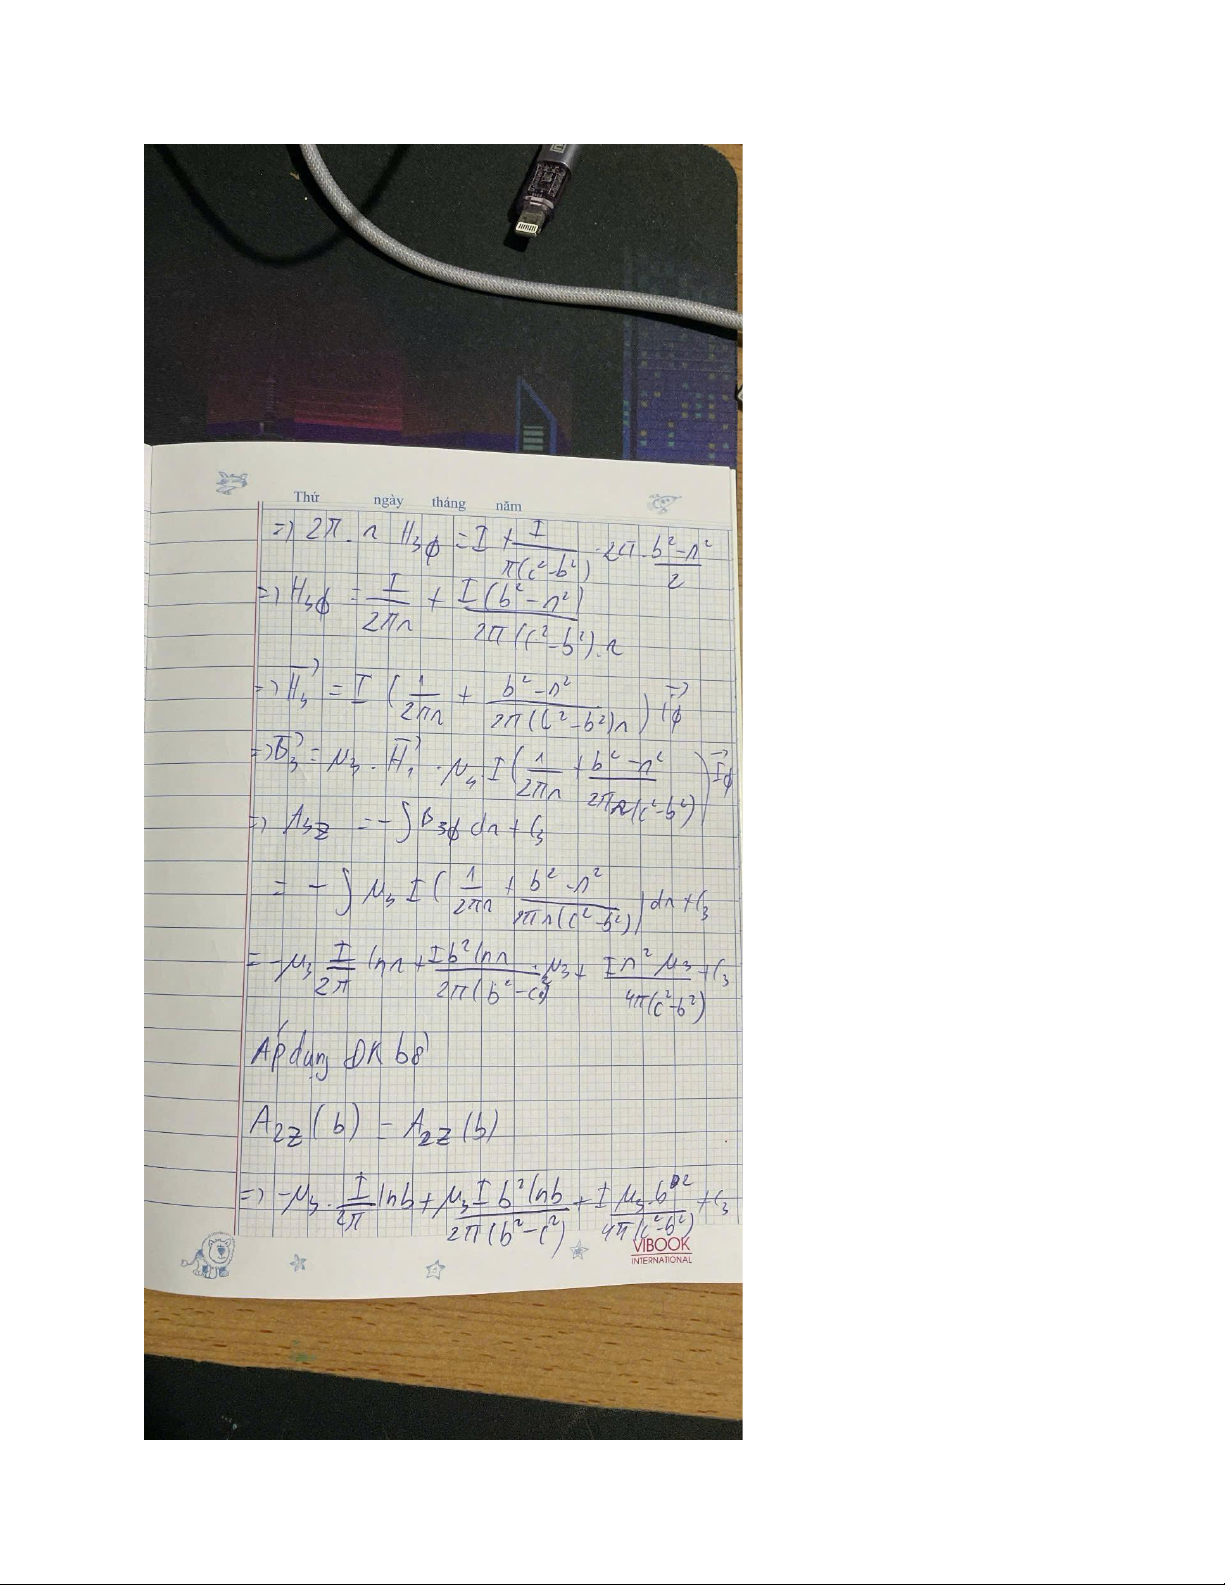 Thứ ngày tháng năm
=> 2π . r H₃ϕ = I + I/(π(c²-b²)) . 2π . (b²-r²)/2
=> H₃ϕ = I/(2πr) + I(b²-r²)/(2π(c²-b²).r)
=> H₃→ = I (1/(2πr) + (b²-r²)/(2π(c²-b²)r)) i→ϕ
=> B₃→ = μ₃ . H₁→ . μ₃ I (1/(2πr) + (b²-r²)/(2πr(c²-b²))) i→ϕ
=> A₃z = -∫ B₃ϕ dr + C₃
= -∫ μ₃ I (1/(2πr) + (b²-r²)/(2πr(c²-b²))) dr + C₃
= -μ₃ I/(2π) lnr + Ib²lnr/(2π(b²-c²)) . μ₃ + Ir²μ₃/(4π(c²-b²)) + C₃
Áp dụng ĐK bờ
A₂z(b) = A₂z(b)
=> -μ₃ . I/(2π) lnb + μ₃Ib²lnb/(2π(b²-c²)) + Iμ₃b²/(4π(c²-b²)) + C₃
VIBOOK
INTERNATIONAL